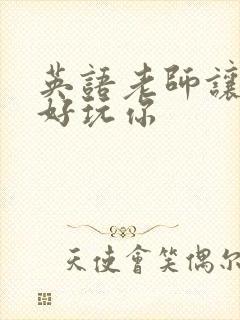 英語老師讓
好玩你
天使會笑偶尔